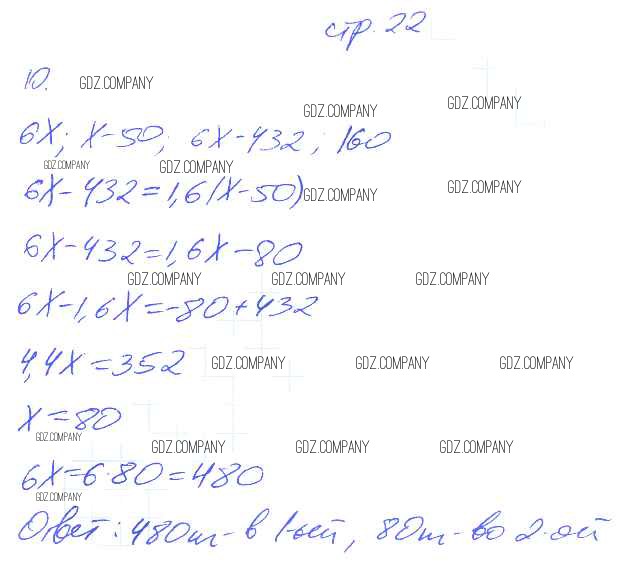 стр. 22
10. GDZ.COMPANY
GDZ.COMPANY GDZ.COMPANY
6x; x-50; 6x-432; 160
GDZ.COMPANY GDZ.COMPANY
6x-432=1,6(x-50) GDZ.COMPANY GDZ.COMPANY
6x-432=1,6x-80
GDZ.COMPANY GDZ.COMPANY GDZ.COMPANY
6x-1,6x=-80+432
4,4x=352 GDZ.COMPANY GDZ.COMPANY GDZ.COMPANY
x=80
GDZ.COMPANY GDZ.COMPANY GDZ.COMPANY GDZ.COMPANY
6x=6·80=480
GDZ.COMPANY
Ответ: 480т-в 1-ой, 80т-во 2-ой